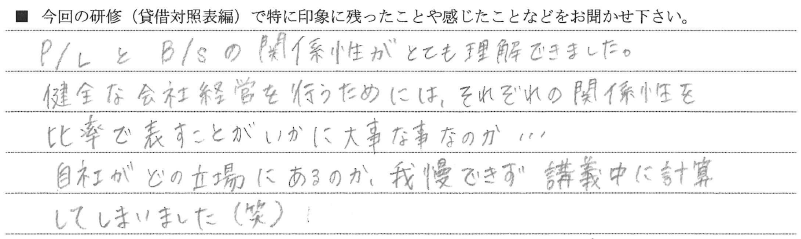 ■ 今回の研修（貸借対照表編）で特に印象に残ったことや感じたことなどをお聞かせ下さい。
P/L と B/S の 関係性がとても理解できました。
健全な会社経営を行うためには、それぞれの関係性を
比率で表すことがいかに大事な事なのか…
自社がどの立場にあるのか、我慢できず 講義中に計算
してしまいました（笑）!